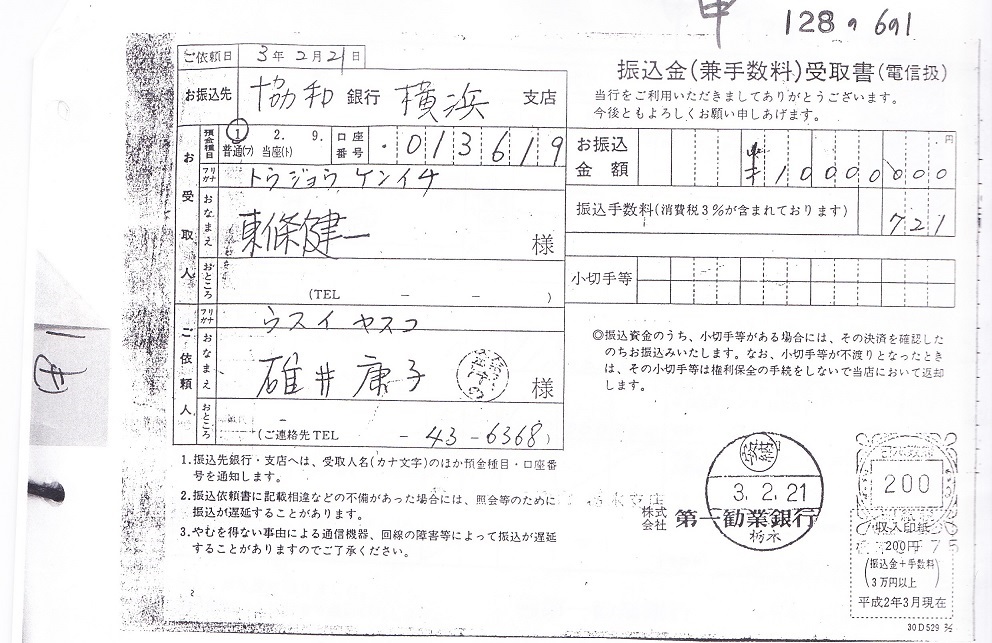 128の691
ご依頼日 3年2月21日
振込金(兼手数料)受取書(電信扱)
お振込先 協和 銀行 横浜 支店
当行をご利用いただきましてありがとうございます。
今後ともよろしくお願い申しあげます。
預金種目 1. 2. 9. 普通(フ) 当座(ト) 口座番号 ・013619
お振込金額 円 ¥10000000
お受取人
フリガナ トウジョウ ケンイチ
振込手数料(消費税3%が含まれております) 721
おなまえ 東條健一 様
おところ (TEL － － )
小切手等
ご依頼人
フリガナ ウスイ ヤスコ
おなまえ 碓井康子 様
おところ (ご連絡先TEL －43－6368)
◎振込資金のうち、小切手等がある場合には、その決済を確認した
のちお振込みいたします。なお、小切手等が不渡りとなったとき
は、その小切手等は権利保全の手続をしないで当店において返却
します。
1.振込先銀行・支店へは、受取人名(カナ文字)のほか預金種目・口座番
号を通知します。
2.振込依頼書に記載相違などの不備があった場合には、照会等のために
振込が遅延することがあります。
3.やむを得ない事由による通信機器、回線の障害等によって振込が遅延
することがありますのでご了承ください。
3.2.21
株式会社 第一勧業銀行
栃木
200
収入印紙
200円
(振込金＋手数料
3万円以上)
平成2年3月現在
2
30D529